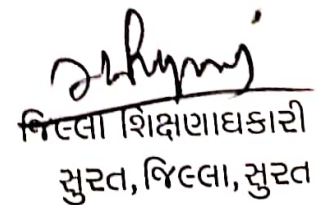 જિલ્લા શિક્ષણાધકારી
સુરત, જિલ્લા, સુરત